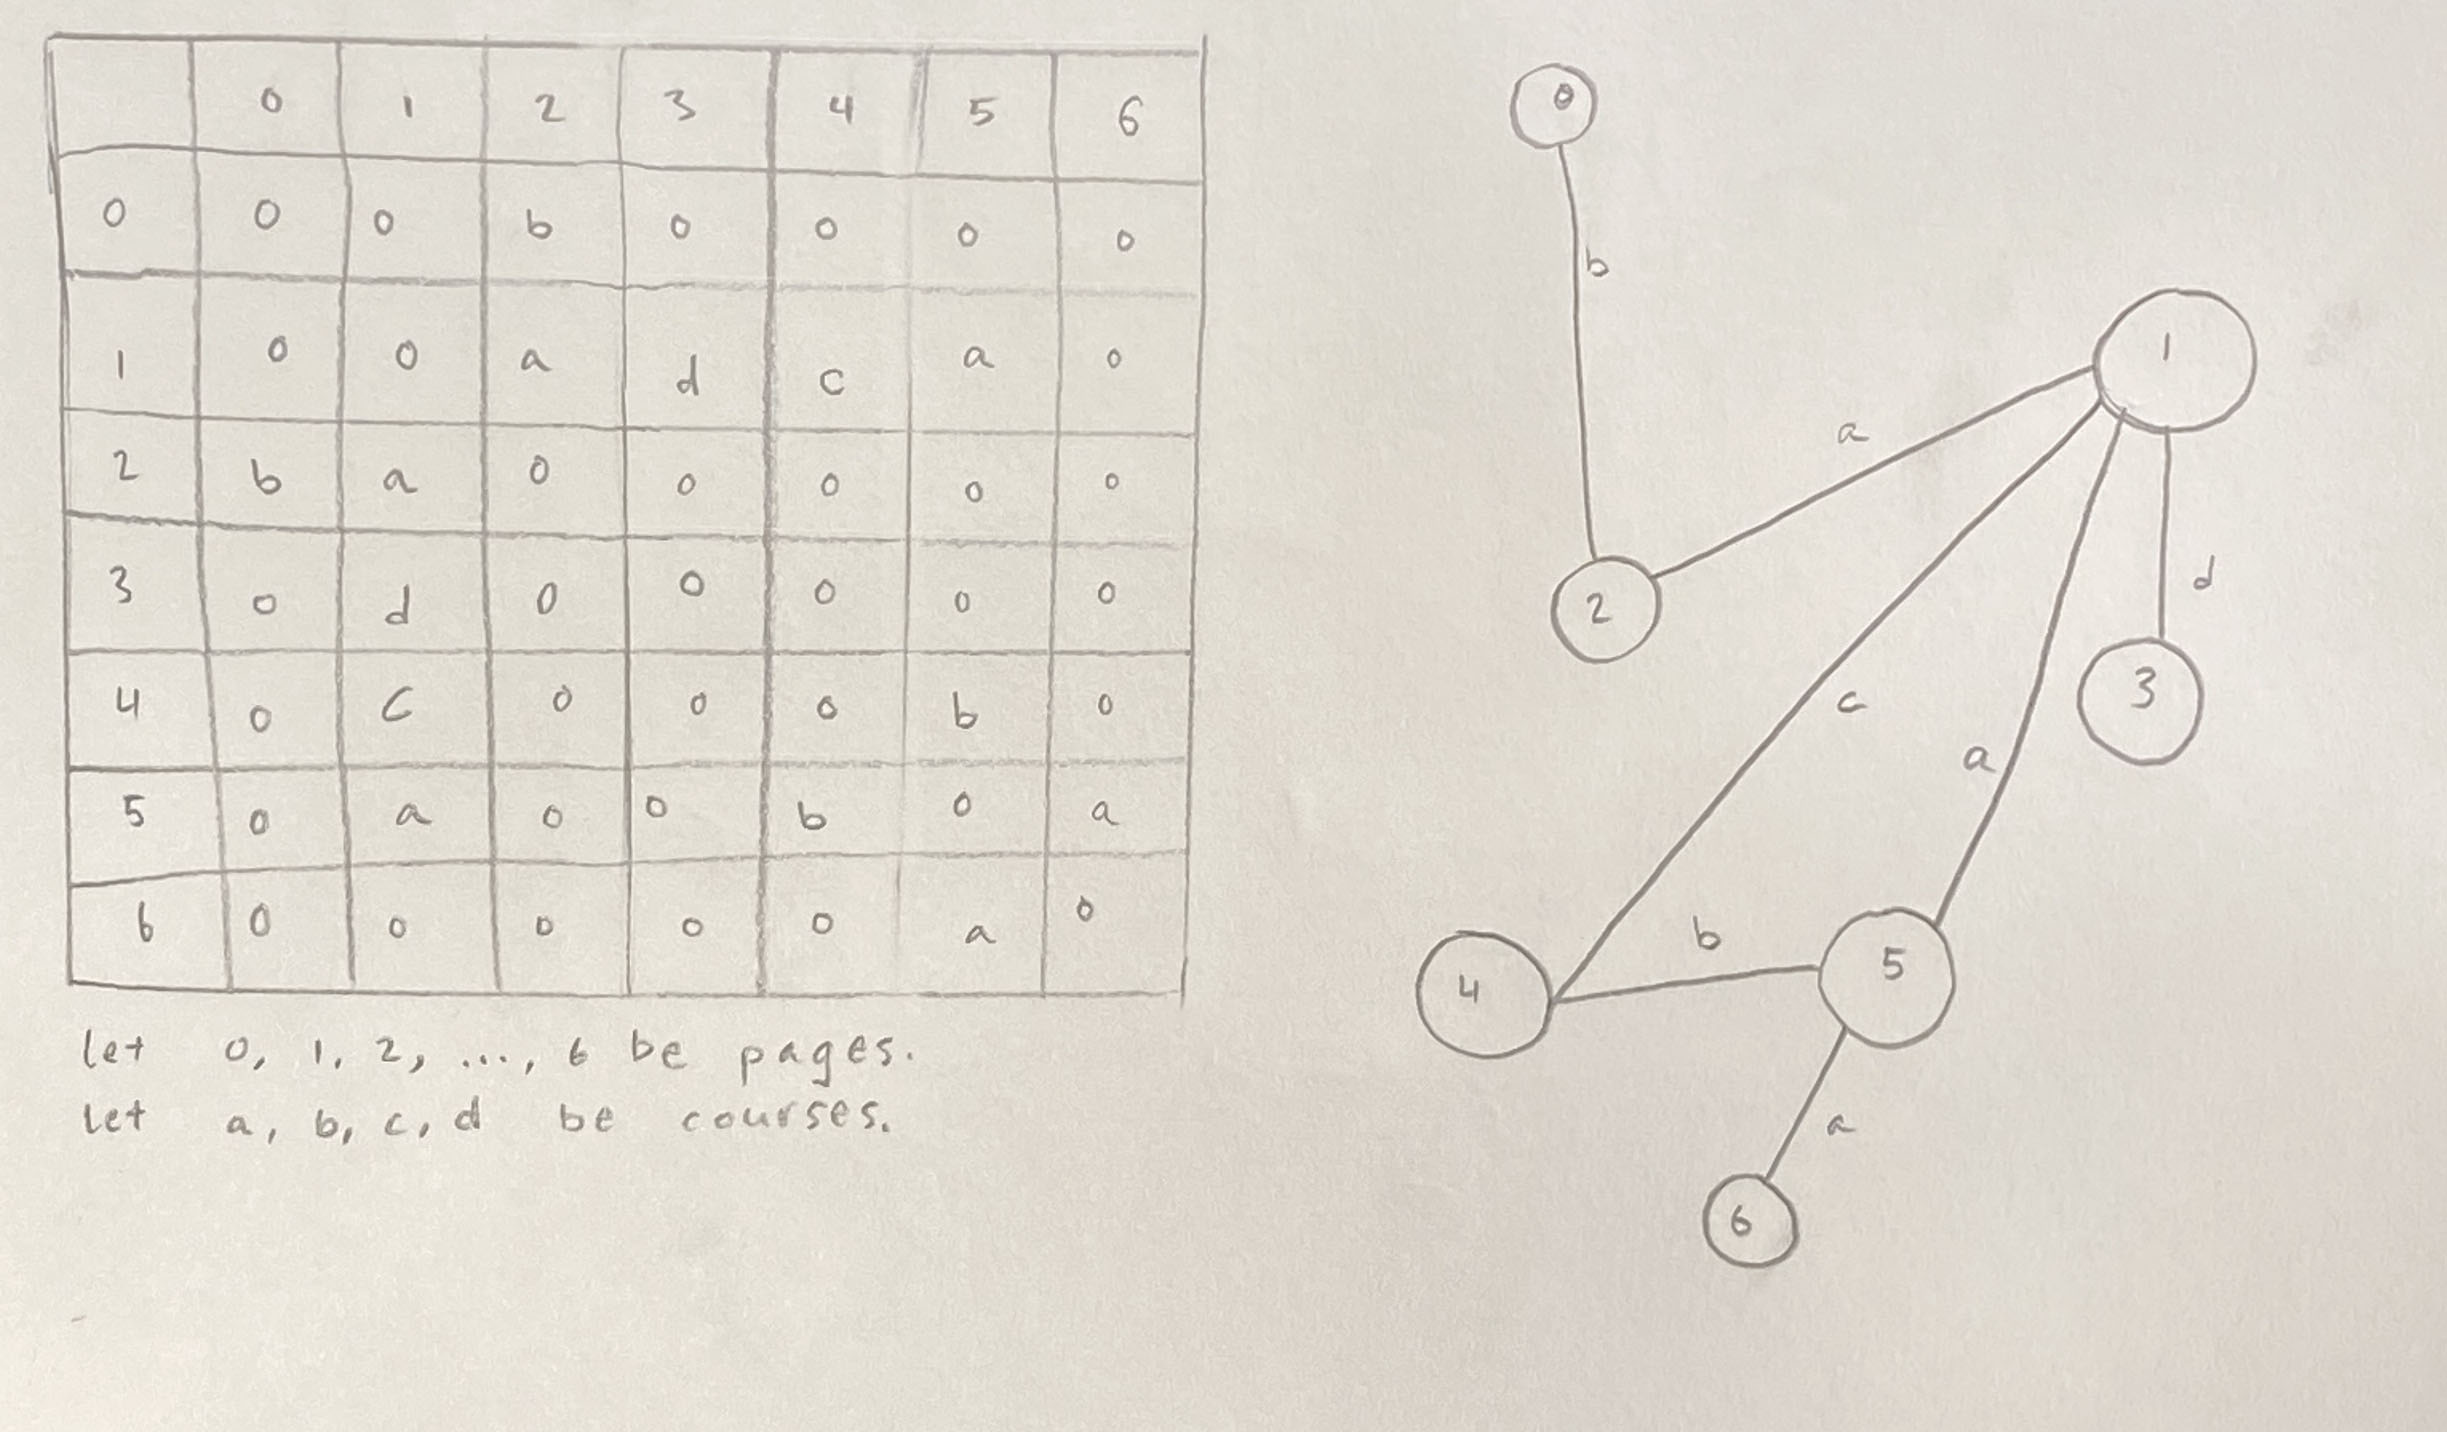 0 1 2 3 4 5 6
0 0 0 b 0 0 0 0
1 0 0 a d c a 0
2 b a 0 0 0 0 0
3 0 d 0 0 0 0 0
4 0 c 0 0 0 b 0
5 0 a 0 0 b 0 a
6 0 0 0 0 0 a 0
let 0, 1, 2, ..., 6 be pages.
Let a, b, c, d be courses.
0
b
1
a
2
d
3
c
a
b
4
5
a
6